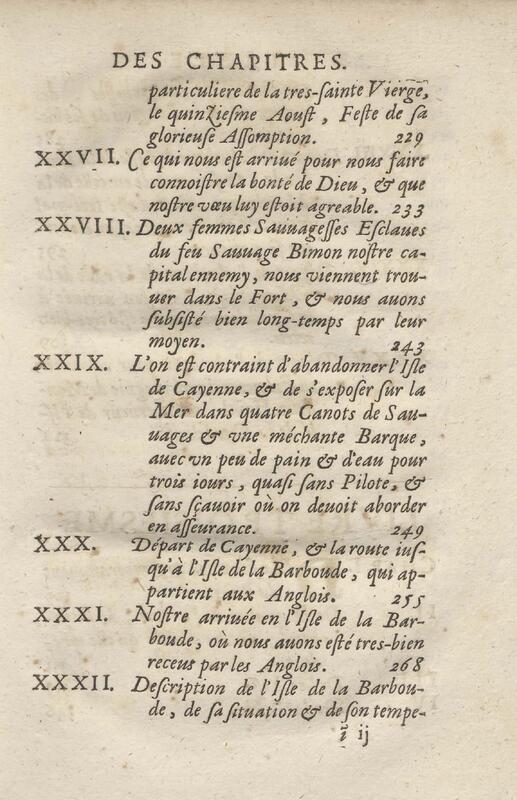 DES CHAPITRES.
particuliere de la tres-sainte Vierge,
le quinziesme Aoust, Feste de sa
glorieuse Assomption. 229
XXVII. Ce qui nous est arriué pour nous faire
connoistre la bonté de Dieu, & que
nostre vœu luy estoit agreable. 233
XXVIII. Deux femmes Sauuagesses Esclaues
du feu Sauuage Bimon nostre ca-
pital ennemy, nous viennent trou-
uer dans le Fort, & nous auons
subsisté bien long-temps par leur
moyen. 243
XXIX. L'on est contraint d'abandonner l'Isle
de Cayenne, & de s'exposer sur la
Mer dans quatre Canots de Sau-
uages & vne méchante Barque,
auec vn peu de pain & d'eau pour
trois iours, quasi sans Pilote, &
sans sçauoir où on deuoit aborder
en asseurance. 249
XXX. Départ de Cayenne, & la route ius-
qu'à l'Isle de la Barboude, qui ap-
partient aux Anglois. 255
XXXI. Nostre arriuée en l'Isle de la Bar-
boude, où nous auons esté tres-bien
receus par les Anglois. 268
XXXII. Description de l'Isle de la Barbou-
de, de sa situation & de son tempe-
ĩ ij